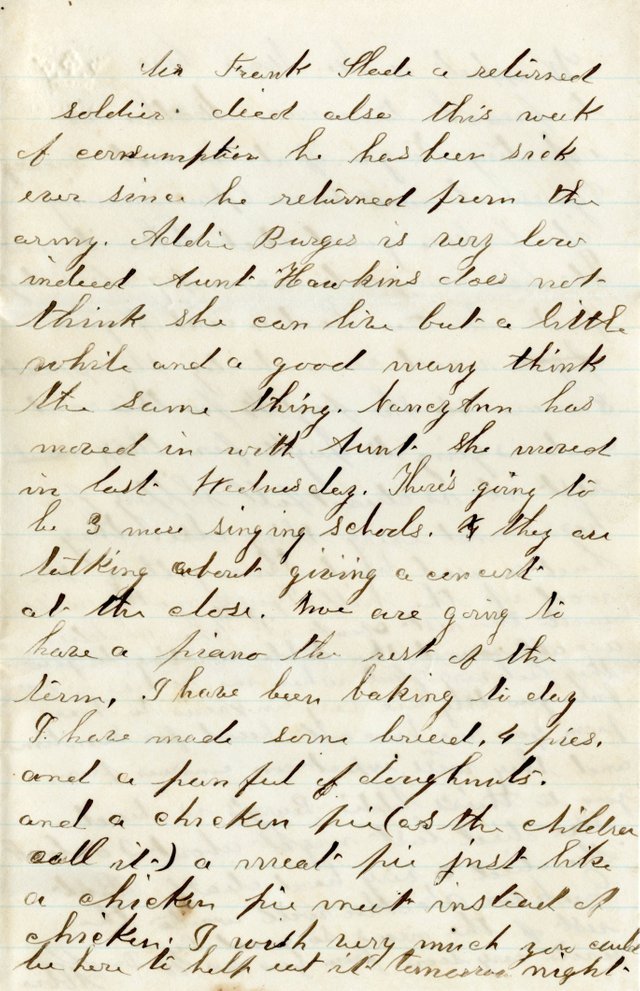 Mr Frank Slade a returned
soldier died also this week
of consumption he has been sick
ever since he returned from the
army. Addie Burges is very low
indeed Aunt Hawkins does not
think she can live but a little
while and a good many think
the same thing. Nancy Ann has
moved in with Aunt she moved
in last Wednesday. There's going to
be 3 more singing schools. & they are
talking about giving a concert
at the close. we are going to
have a piano the rest of the
term, I have been baking to day
I have made some bread. 4 pies.
and a pan ful of doughnuts.
and a chicken pie (as the children
call it) a meat pie just like
a chicken pie meat instead of
chicken. I wish very much you could
be here to help eat it tomorrow night